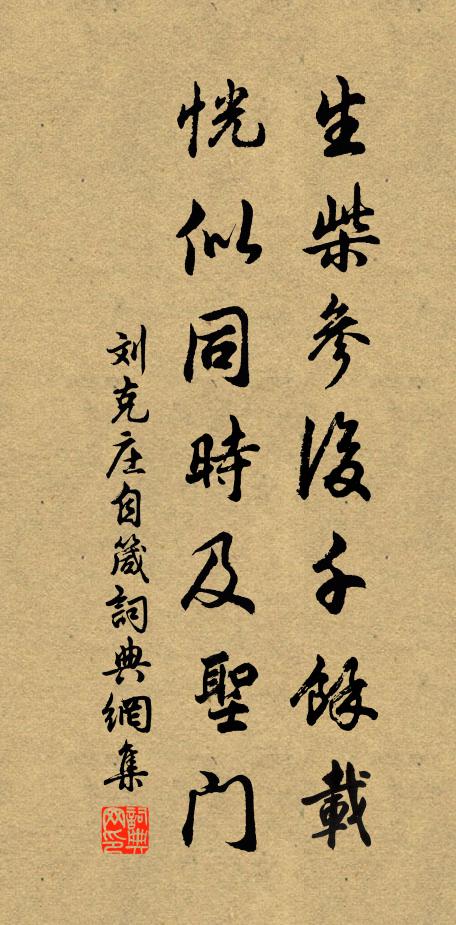 生柴參後千餘載
恍似同時及聖門
刘克庄自箴詞典網集
詞典网印